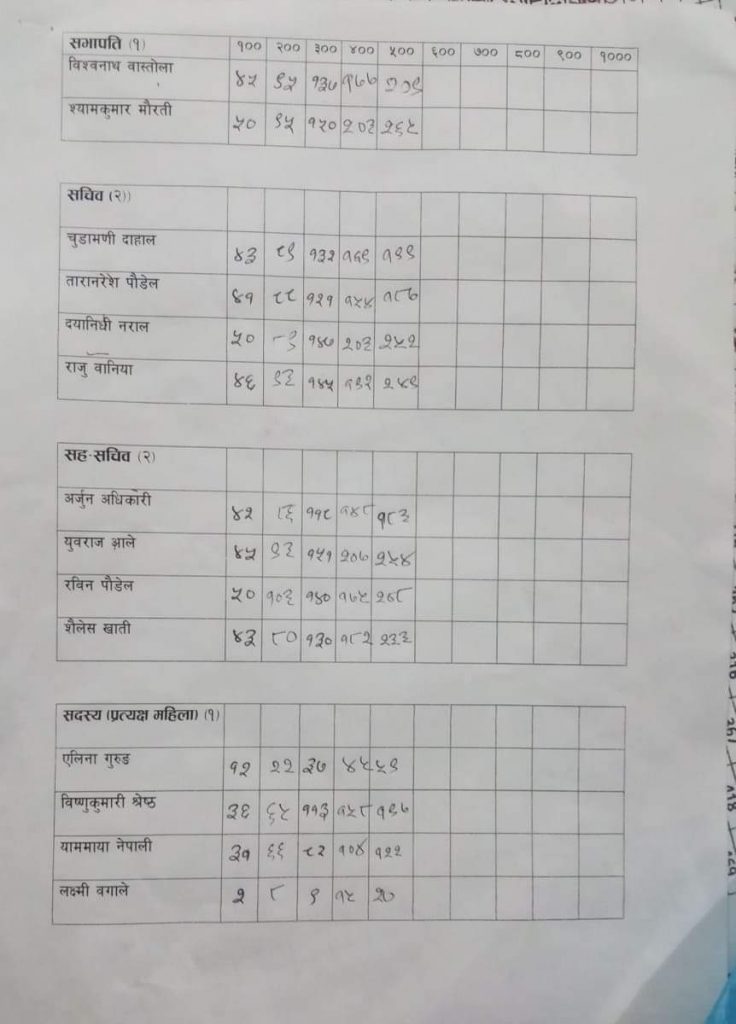 सभापति (१) १०० २०० ३०० ४०० ५०० ६०० ७०० ८०० ९०० १०००
विश्वनाथ वास्तोला ४५ ९५ १३७ १७७ २०९
श्यामकुमार मौरती ५० ९५ १५० २०३ २६९
सचिव (२))
चुडामणी दाहाल ४३ ८९ १३२ १६९ १९९
तारानरेश पौडेल ४१ ८८ १२१ १५४ १८७
दयानिधी नराल ५० ८९ १४७ २०३ २५२
राजु वानिया ४६ ९३ १४५ १९२ २४९
सह-सचिव (२)
अर्जुन अधिकारी ४२ ८६ ११८ १४८ १८३
युवराज आले ४५ ९३ १५१ २०७ २५४
रविन पौडेल ५० १०३ १४० १७५ २०८
शैलेस खाती ४३ ८० १३० १८२ २३३
सदस्य (प्रत्यक्ष महिला) (१)
एलिना गुरुङ १२ २२ ३७ ४५ ५९
विष्णुकुमारी श्रेष्ठ ३६ ६५ ११३ १५८ १९७
याममाया नेपाली ३१ ६६ ८२ १०४ १२२
लक्ष्मी वगाले २ ८ ९ १५ २०